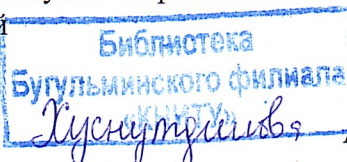 й
Библиотека
Бугульминского филиала
«КНИТУ»
Хуснутдинова